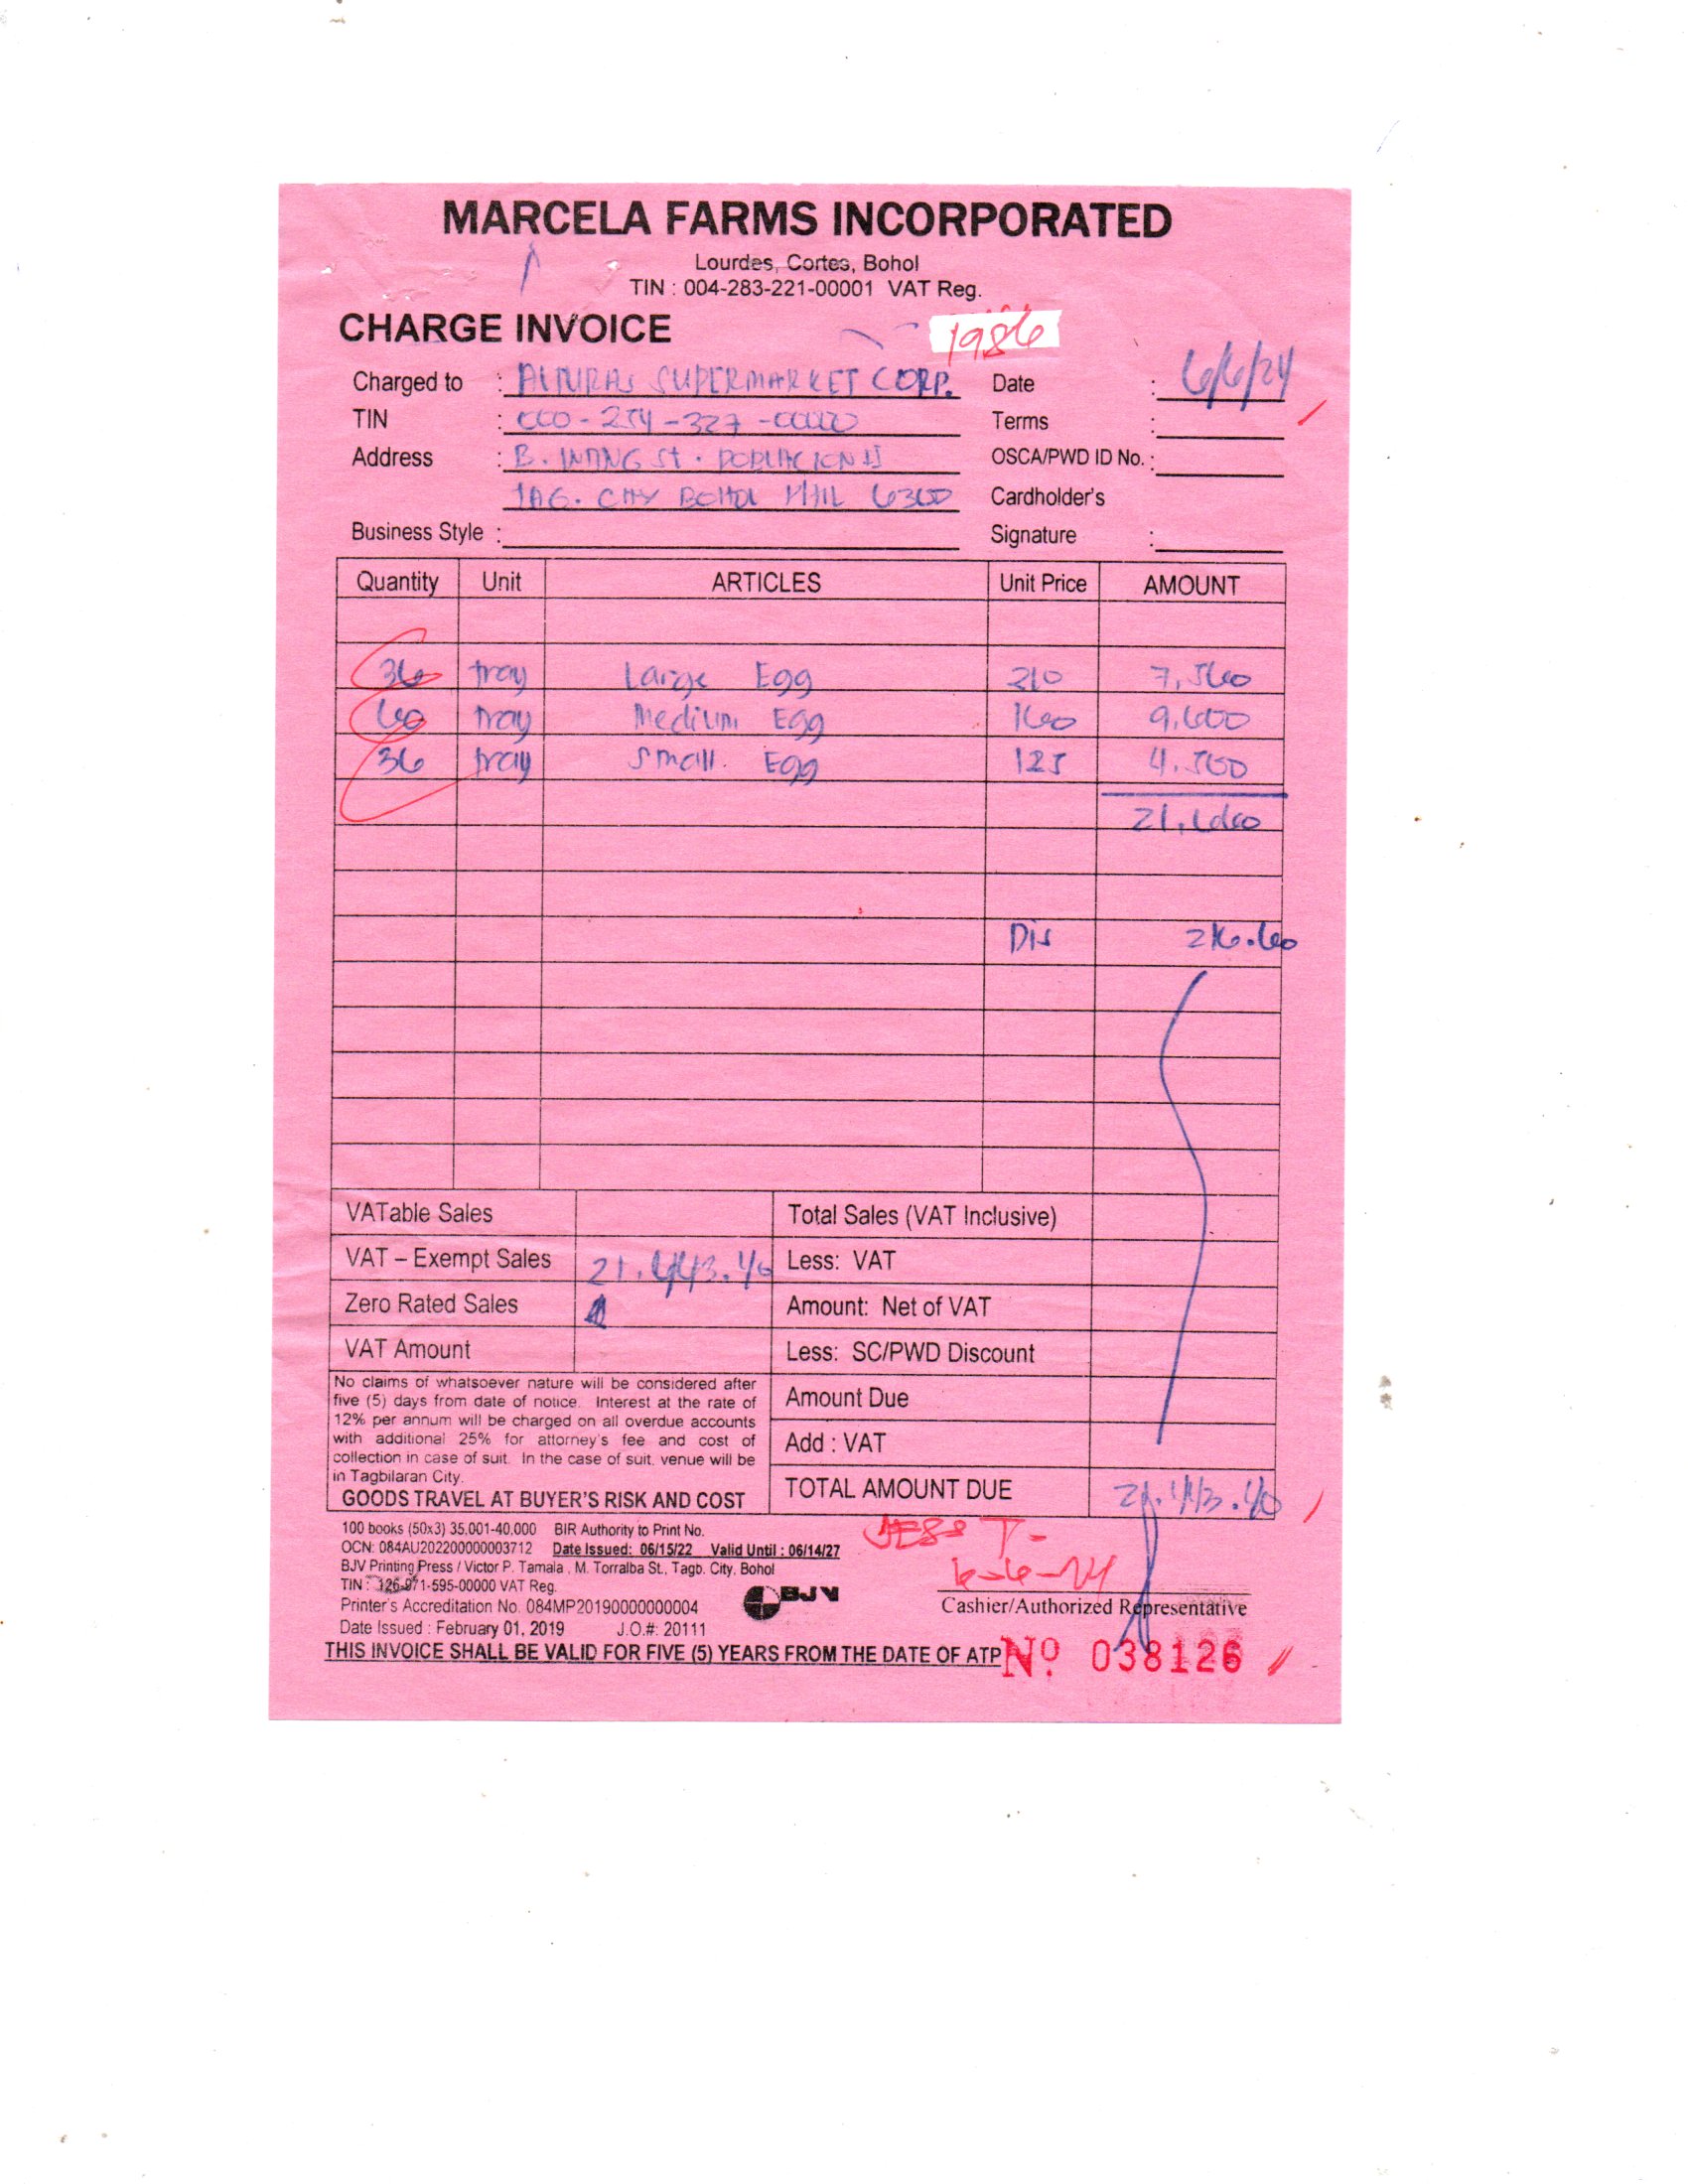 MARCELA FARMS INCORPORATED
Lourdes, Cortes, Bohol
TIN : 004-283-221-00001 VAT Reg.
CHARGE INVOICE
1986
Charged to : ALTURAS SUPERMARKET CORP. Date : 6/6/24
TIN : 000-254-327-00000 Terms :
Address : B. INTING St. POBLACION II OSCA/PWD ID No. :
TAG. CITY BOHOL PHIL 6300 Cardholder's
Business Style : Signature :
Quantity Unit ARTICLES Unit Price AMOUNT
36 tray Large Egg 210 7,560
60 tray Medium Egg 160 9,600
36 tray Small. Egg 125 4.500
21,660
Dis 216.60
VATable Sales Total Sales (VAT Inclusive)
VAT – Exempt Sales 21.443.40 Less: VAT
Zero Rated Sales Amount: Net of VAT
VAT Amount Less: SC/PWD Discount
No claims of whatsoever nature will be considered after
five (5) days from date of notice. Interest at the rate of
12% per annum will be charged on all overdue accounts
with additional 25% for attorney's fee and cost of
collection in case of suit. In the case of suit, venue will be
in Tagbilaran City.
GOODS TRAVEL AT BUYER'S RISK AND COST
Amount Due
Add : VAT
TOTAL AMOUNT DUE 21.443.40
100 books (50x3) 35,001-40,000 BIR Authority to Print No.
OCN: 084AU202200000003712 Date Issued: 06/15/22 Valid Until : 06/14/27
BJV Printing Press / Victor P. Tamala , M. Torralba St., Tagb. City, Bohol
TIN : 126-971-595-00000 VAT Reg.
Printer's Accreditation No. 084MP20190000000004
Date Issued : February 01, 2019 J.O.#: 20111
BJV
JESS T-
6-6-24
Cashier/Authorized Representative
THIS INVOICE SHALL BE VALID FOR FIVE (5) YEARS FROM THE DATE OF ATP
Nº 038126